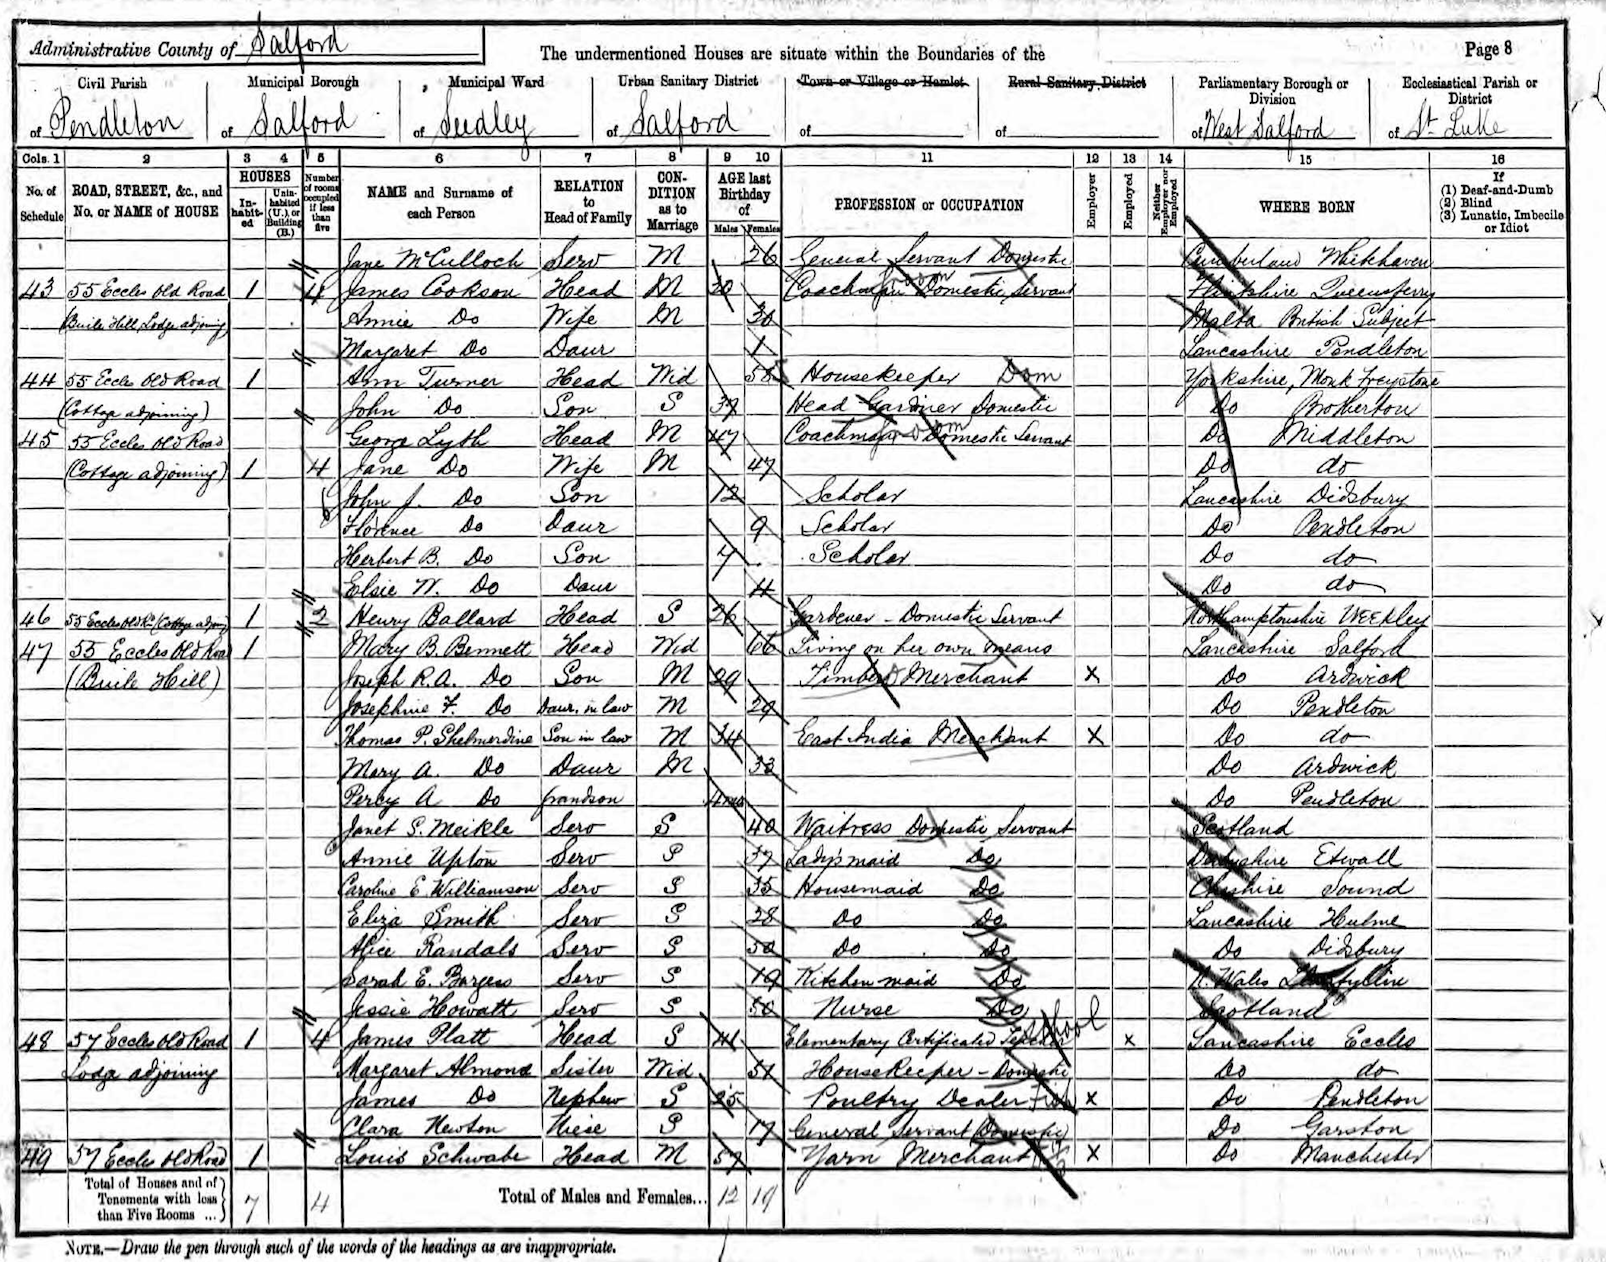 Administrative County of Salford
The undermentioned Houses are situate within the Boundaries of the
Page 8
Civil Parish of Pendleton
Municipal Borough of Salford
Municipal Ward of Seedley
Urban Sanitary District of Salford
Town or Village or Hamlet of
Rural Sanitary District of
Parliamentary Borough or Division of West Salford
Ecclesiastical Parish or District of St Luke
Cols. 1 2 3 4 5 6 7 8 9 10 11 12 13 14 15 16
No. of Schedule
ROAD, STREET, &c., and No. or NAME of HOUSE
HOUSES
Inhabited
Uninhabited (U.), or Building (B.)
Number of rooms occupied if less than five
NAME and Surname of each Person
RELATION to Head of Family
CONDITION as to Marriage
AGE last Birthday of
Males Females
PROFESSION or OCCUPATION
Employer
Employed
Neither Employer nor Employed
WHERE BORN
If (1) Deaf-and-Dumb (2) Blind (3) Lunatic, Imbecile or Idiot
Jane McCulloch Serv M 26 General Servant Domestic Cumberland Whitehaven
43 55 Eccles Old Road 1 4 James Cookson Head M 30 Coachman Domestic Servant Flintshire Queensferry
(Buile Hill Lodge adjoining) Annie Do Wife M 30 Malta British Subject
Margaret Do Daur 1 Lancashire Pendleton
44 55 Eccles Old Road 1 Ann Turner Head Wid 58 Housekeeper Dom Yorkshire, Monk Freystone
(Cottage adjoining) John Do Son S 37 Head Gardener Domestic Do Brotherton
45 55 Eccles Old Road George Lyth Head M 47 Coachman Dom Domestic Servant Do Middleton
(Cottage adjoining) 1 4 Jane Do Wife M 47 Do do
John J. Do Son 12 Scholar Lancashire Didsbury
Florence Do Daur 9 Scholar Do Pendleton
Herbert B. Do Son 7 Scholar Do do
Elsie W. Do Daur 4 Do do
46 55 Eccles Old Rd (Cottage adjoing) 1 2 Henry Ballard Head S 26 Gardener - Domestic Servant Northamptonshire Weekley
47 55 Eccles Old Road 1 Mary B. Bennett Head Wid 66 Living on her own means Lancashire Salford
(Buile Hill) Joseph R.A. Do Son M 29 Timber Merchant X Do Ardwick
Josephine F. Do Daur. in law M 29 Do Pendleton
Thomas P. Shelmerdine Son in law M 34 East India Merchant X Do do
Mary A. Do Daur M 33 Do Ardwick
Percy A Do Grandson 4 mos Do Pendleton
Janet S. Meikle Serv S 40 Waitress Domestic Servant Scotland
Annie Upton Serv S 37 Ladysmaid Do Derbyshire Etwall
Caroline E. Williamson Serv S 35 Housemaid Do Cheshire Sound
Eliza Smith Serv S 28 Do Do Lancashire Hulme
Alice Randals Serv S 50 Do Do Do Didsbury
Sarah E. Burgess Serv S 19 Kitchen maid Do N. Wales
Jessie Howatt Serv S 50 Nurse Do Scotland
48 57 Eccles Old Road 1 4 James Platt Head S 41 Elementary Certificated Teacher School X Lancashire Eccles
Lodge adjoining Margaret Almond Sister Wid 51 Housekeeper - Domestic Do do
James Do Nephew S 25 Poultry Dealer Fish X Do Pendleton
Clara Newton Niece S 17 General Servant Domestic Do Garston
49 57 Eccles Old Road 1 Louis Schwabe Head M 57 Yarn Merchant X Do Manchester
Total of Houses and of Tenements with less than Five Rooms ... 7 4
Total of Males and Females... 12 19
NOTE.—Draw the pen through such of the words of the headings as are inappropriate.